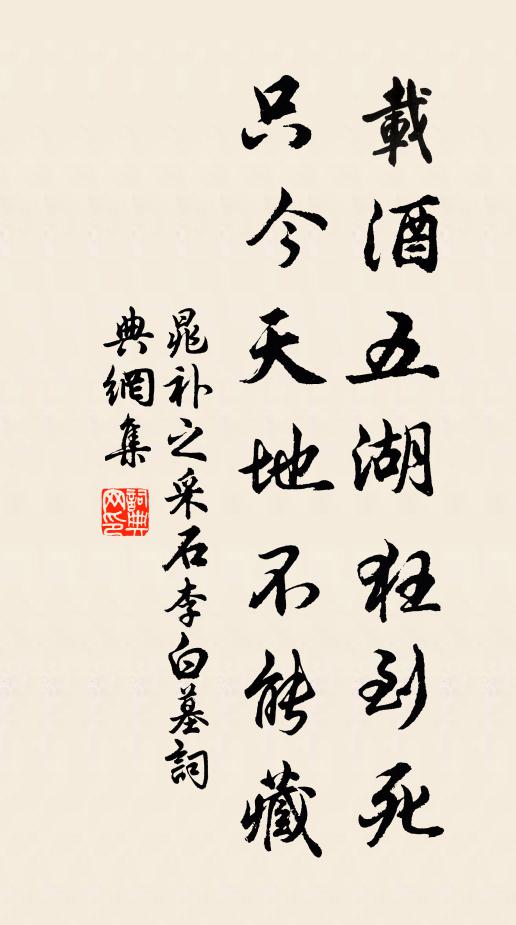 載酒五湖狂到死
只今天地不能藏
晁補之采石李白墓詞
典網集
詞典網印